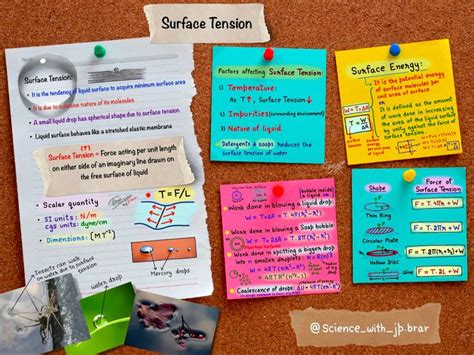 Surface Tension
Surface Tension:
• It is the tendency of liquid surface to acquire minimum surface area
• It is due to cohesive nature of its molecules
• A small liquid drop has spherical shape due to surface tension
• Liquid surface behaves like a stretched elastic membrane
(T)
Surface Tension = Force acting per unit length
on either side of an imaginary line drawn on
the free surface of liquid
• Scalar quantity
• SI units: N/m
cgs units: dyne/cm
• Dimensions: [MT⁻²]
T = F/L
Mercury drops
Insects can walk
on water due to
surface tension
water drop
Factors affecting Surface Tension:
1) Temperature:
As T↑, Surface Tension↓
2) Impurities (surrounding environment)
3) Nature of liquid
Detergents & soaps reduces the
surface tension of water
Surface Energy:
It is the potential energy
of surface molecules per
unit area of surface
W = TΔA
It is defined as the
amount of work done in increasing
the area of the liquid surface
by unity against the
surface of tension
bubble inside
a liquid
Work done in blowing a liquid drop:
Work done in blowing a Soap bubble:
Work done in splitting a bigger drop
into n smaller droplets:
Coalescence of drops:
Shape
Force of
Surface Tension
Thin Ring
Circular Plate
Hollow Disc
Thin Wire
F = T. 2L
@Science_with_jp.brar